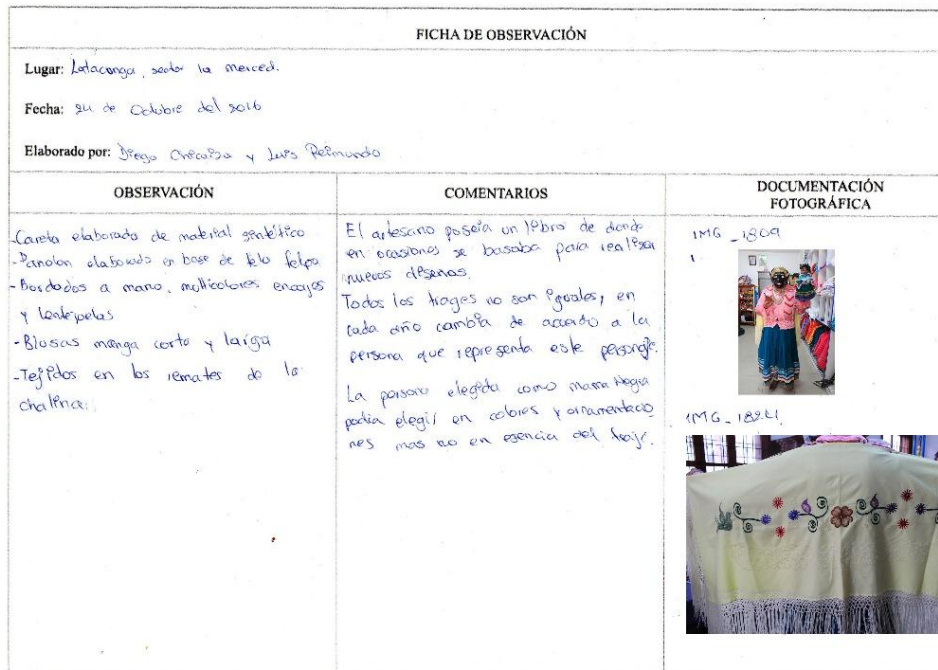 FICHA DE OBSERVACIÓN
Lugar: Latacunga, sector la merced.
Fecha: 24 de Octubre del 2016
Elaborado por: Diego Chicaiza y Luis Reimundo
OBSERVACIÓN
-Careta elaborado de material sintético
-Panolon elaborado en base de tela felpa
-Bordados a mano, multicolores encajes
y lentejuelas
-Blusas manga corta y larga
-Tejidos en los remates de la
chalina.
COMENTARIOS
El artesano poseía un libro de donde
en ocasiones se basaba para realizar
nuevos diseños.
Todos los trages no son iguales, en
cada año cambia de acuerdo a la
persona que representa este personaje.
La persona elegida como mama Negra
podía elegir en colores y ornamentacio
nes mas no en esencia del traje.
DOCUMENTACIÓN
FOTOGRÁFICA
IMG_1809
IMG_1824